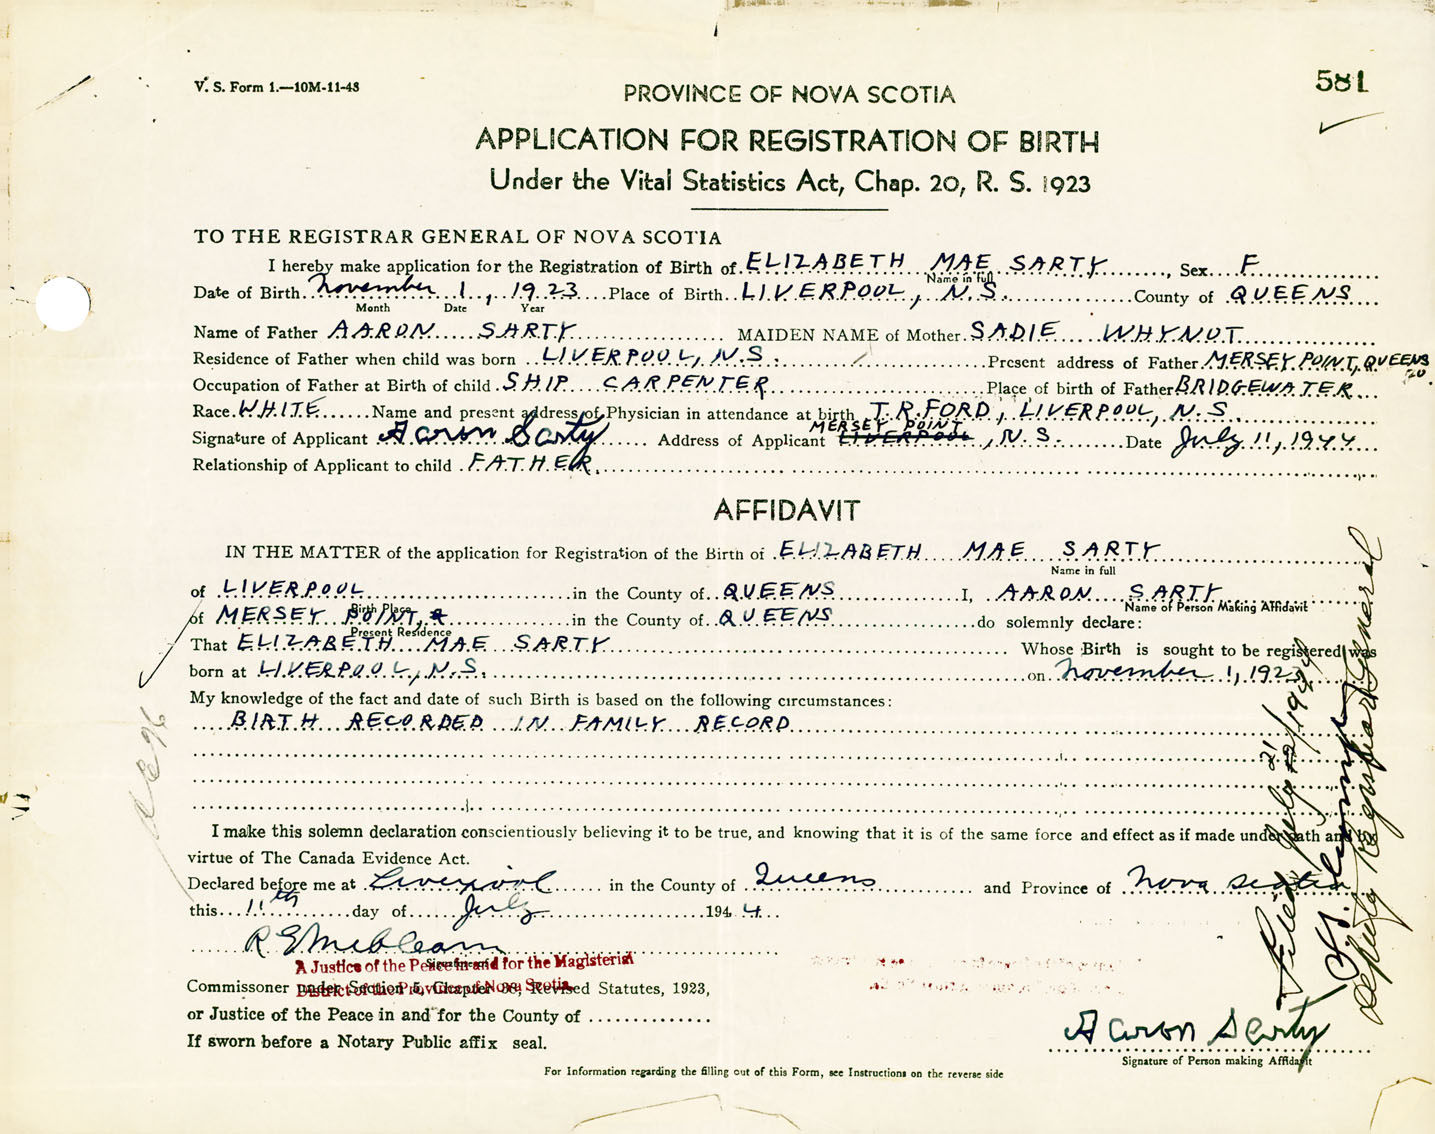 V. S. Form 1.—10M-11-43
581
PROVINCE OF NOVA SCOTIA
APPLICATION FOR REGISTRATION OF BIRTH
Under the Vital Statistics Act, Chap. 20, R. S. 1923
TO THE REGISTRAR GENERAL OF NOVA SCOTIA
I hereby make application for the Registration of Birth of ELIZABETH MAE SARTY, Sex F
Name in full
Date of Birth November 1, 1923 Place of Birth LIVERPOOL, N.S. County of QUEENS
Month Date Year
Name of Father AARON SARTY MAIDEN NAME of Mother SADIE WHYNOT
Residence of Father when child was born LIVERPOOL, N.S. Present address of Father MERSEY POINT, QUEENS CO.
Occupation of Father at Birth of child SHIP CARPENTER Place of birth of Father BRIDGEWATER
Race WHITE Name and present address of Physician in attendance at birth T.R. FORD, LIVERPOOL, N.S.
Signature of Applicant Aaron Sarty Address of Applicant MERSEY POINT LIVERPOOL, N.S. Date July 11, 1944
Relationship of Applicant to child FATHER
AFFIDAVIT
IN THE MATTER of the application for Registration of the Birth of ELIZABETH MAE SARTY
Name in full
of LIVERPOOL in the County of QUEENS I, AARON SARTY
Birth Place Name of Person Making Affidavit
of MERSEY POINT, in the County of QUEENS do solemnly declare:
Present Residence
That ELIZABETH MAE SARTY Whose Birth is sought to be registered was
born at LIVERPOOL, N.S. on November 1, 1923
My knowledge of the fact and date of such Birth is based on the following circumstances:
BIRTH RECORDED IN FAMILY RECORD
I make this solemn declaration conscientiously believing it to be true, and knowing that it is of the same force and effect as if made under oath and by
virtue of The Canada Evidence Act.
Declared before me at Liverpool in the County of Queens and Province of Nova Scotia
this 11th day of July 1944
Signature
A Justice of the Peace in and for the Magisterial
District of the Province of Nova Scotia
Commissoner under Section 5, Chapter 38, Revised Statutes, 1923,
or Justice of the Peace in and for the County of
If sworn before a Notary Public affix seal.
Aaron Sarty
Signature of Person making Affidavit
For Information regarding the filling out of this Form, see Instructions on the reverse side
Filed July 21/1944
Deputy Registrar General